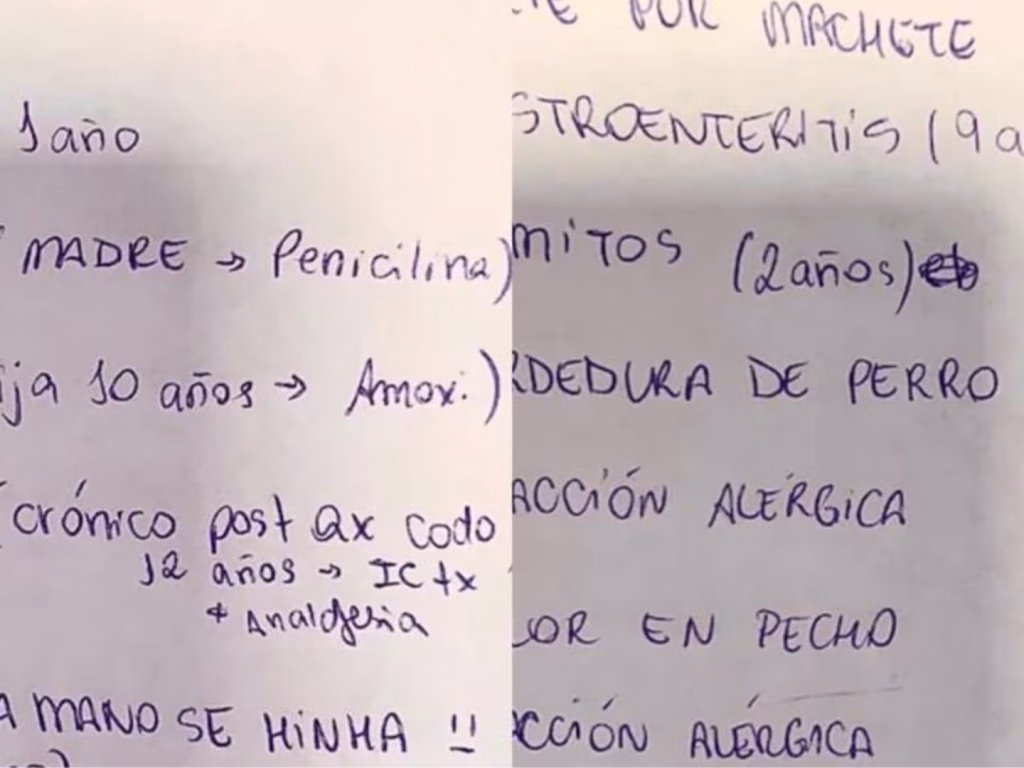 1 año
MADRE → Penicilina)
ja 10 años → Amox.)
crónico post Qx codo
12 años → ICtx
+ Analgesia
A MANO SE HINHA !!
POR MACHETE
STROENTERITIS (9 a
MITOS (2 años)
RDEDURA DE PERRO
ACCIÓN ALÉRGICA
LOR EN PECHO
CCIÓN ALÉRGICA